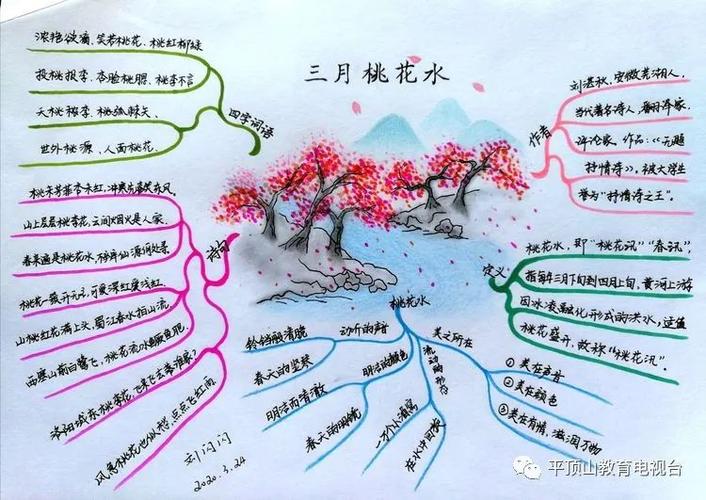 三月桃花水
浓艳欲滴、笑若桃花、桃红柳绿
投桃报李、杏脸桃腮、桃李不言
夭桃秾李、桃弧棘矢、
世外桃源、人面桃花。
四字词语
作者
刘湛秋,安徽芜湖人,
当代著名诗人,翻译家,
评论家,作品:《无题
抒情诗》,被大学生
誉为"抒情诗之王"。
诗句
桃未芳菲杏未红,冲寒先喜笑东风。
山上层层桃李花,云间烟火是人家。
春来遍是桃花水,不辨仙源何处寻
桃花一簇开无主,可爱深红爱浅红。
山桃红花满上头,蜀江春水拍山流
西塞山前白鹭飞,桃花流水鳜鱼肥。
洛阳城东桃李花,飞来飞去落谁家?
风急桃花也似愁,点点飞红雨
定义
桃花水,即"桃花汛""春汛",
指每年三月下旬到四月上旬,黄河上游
因冰凌融化形成的洪水,适值
桃花盛开,故称"桃花汛"。
桃花水
动听的声
铃铛般清脆
春天的竖琴
明洁的颜色
明洁而清澈
春天的
流动的形态
一个个小酒窝
在水中回旋
美之所在
①美在声音
②美在颜色
③美在有情,滋润万物
刘闪闪
2020.3.24
平顶山教育电视台